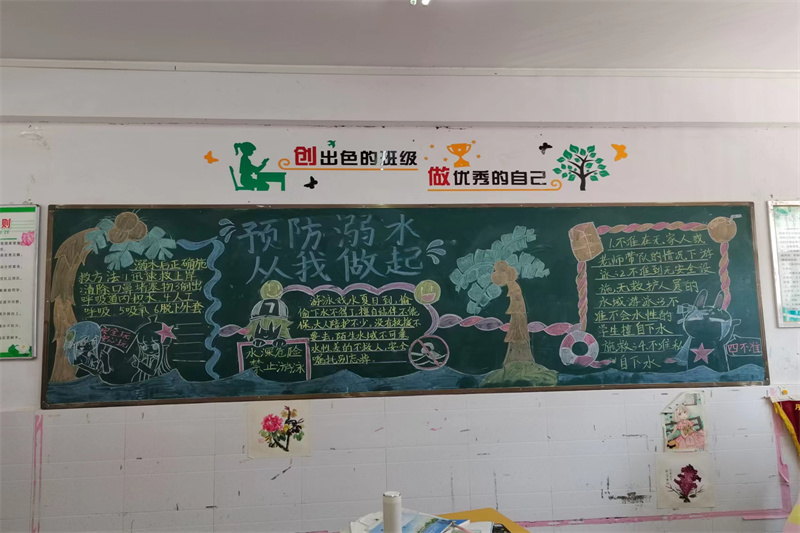 创出色的班级
做优秀的自己
则
预防溺水
从我做起
1.溺水后正确施
救方法:1.迅速救上岸
清除口鼻堵塞物3.倒出
呼吸道内积水.4.人工
呼吸.5.吸氧6.脱下外套
水深危险
禁止游泳
游泳戏水夏日到,偷
偷下水不得了,擅自结伴不能
保,大人陪护不可少,没有救援不
要去,陌生水域不可靠,
水性差的不救人,安全
1.不准在无家人或
老师带队的情况下游
泳.2不准到无安全设
施,无救护人员的
水域游泳3.不
准不会水性的
学生擅自下水
施救.4不准私
自下水
四不准